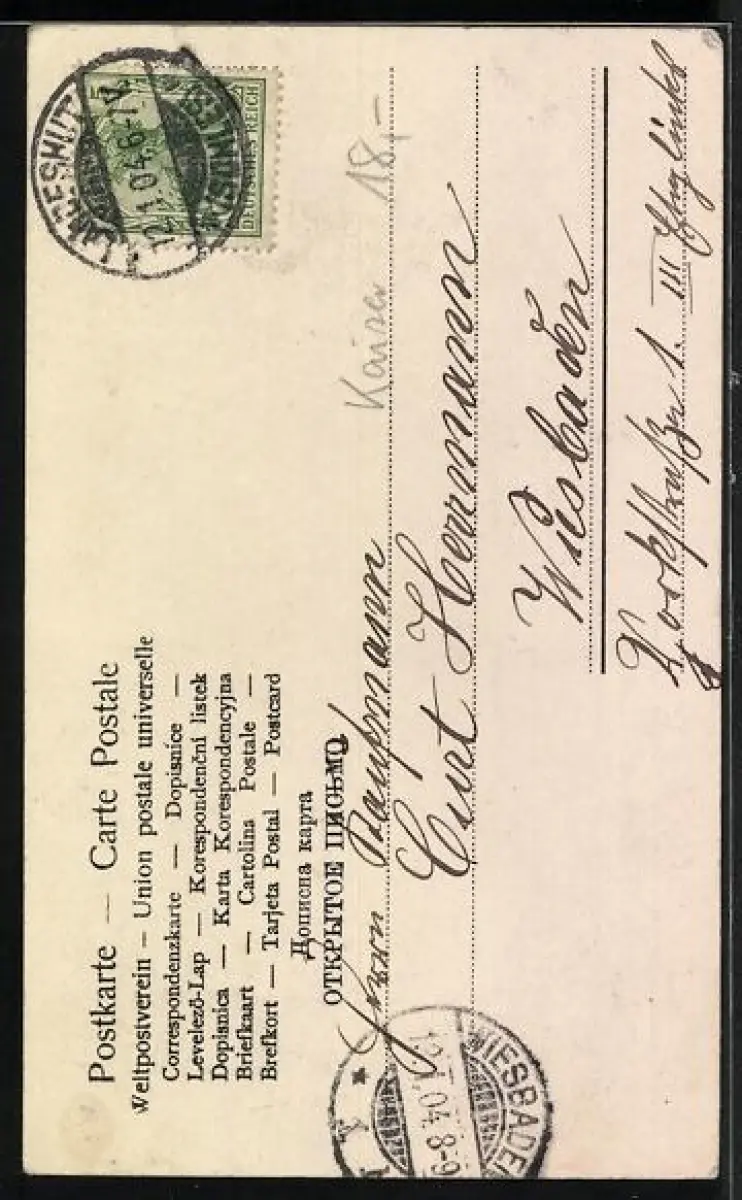 Postkarte — Carte Postale
Weltpostverein — Union postale universelle
Correspondenzkarte — Dopisnice —
Levelező-Lap — Korespondenční listek
Dopisnica — Karta Korespondencyjna
Briefkaart — Cartolina Postale —
Brefkort — Tarjeta Postal — Postcard
Дописна карта
ОТКРЫТОЕ ПИСЬМО.
DEUTSCHES REICH
5
LANDESHUT
(SCHLES)
12.1.04.6-7N.
Kaiser 18,-
Herrn Kaufmann
Curt Herrmann
Wiesbaden
1. III
WIESBADEN
1.04.8-9